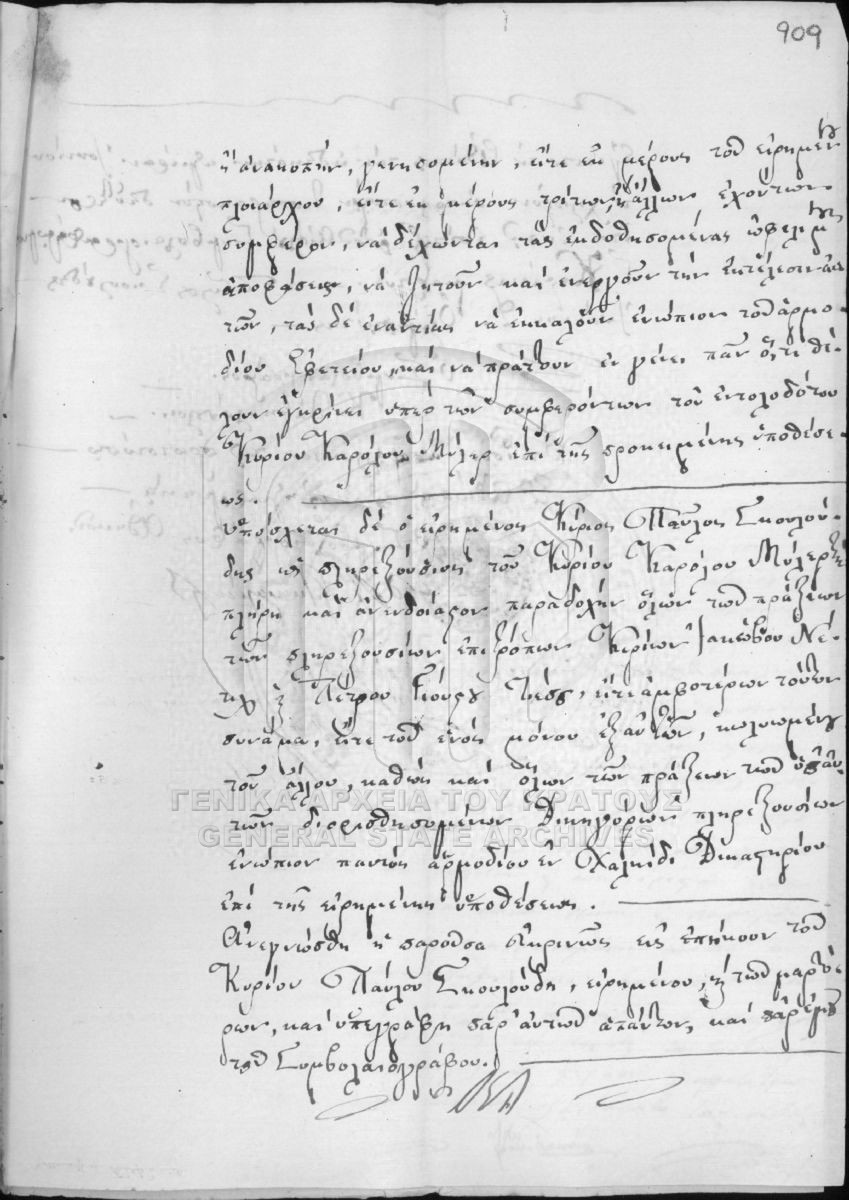 909
ἢ ἀνακοπὴν, γενησομένην, εἴτε ἐκ μέρους τοῦ εἰρημένου
πλοιάρχου, εἴτε ἐκ μέρους τρίτων, ἢ ἄλλων ἐχόντων
συμφέρον, νὰ δέχωνται τὰς ἐκδοθησομένας ὠφελίμους
ἀποφάσεις, νὰ ζητοῦν καὶ ἐνεργοῦν τὴν ἐκτέλεσιν αὐ
τῶν, τὰς δὲ ἐναντίας νὰ ἐκκαλοῦν ἐνώπιον τοῦ ἁρμο-
δίου Ἐφετείου, καὶ νὰ πράττουν ἐν γένει πᾶν ὅ,τι θέ-
λουν ἐγκρίνει ὑπὲρ τῶν συμφερόντων τοῦ ἐντολοδότου
Κυρίου Καρόλου Μύλερ ἐπὶ τῆς προκειμένης ὑποθέσε-
ως.
Ὑπόσχεται δὲ ὁ εἰρημένος Κύριος Παῦλος Σκουλού-
δης ὡς πληρεξούσιος τοῦ Κυρίου Καρόλου Μύλερ
πλήρη καὶ ἀνενδοίαστον παραδοχὴν ὅλων τῶν πράξεων
τῶν πληρεξουσίων ἐπιτρόπων Κυρίων Ἰακώβου Νέ-
Πέτρου Γιούρου Τέσσ, εἴτε ἀμφοτέρων τούτων
συνάμα, εἴτε τοῦ ἑνὸς μόνου ἐξ αὐτῶν, κωλυομένου
τοῦ ἄλλου, καθὼς καὶ ὅλων τῶν πράξεων τῶν ὑπ' αὐ
τῶν διορισθησομένων Δικηγόρων πληρεξουσίων
ἐνώπιον παντὸς ἁρμοδίου ἐν Χαλκίδι Δικαστηρίου
ἐπὶ τῆς εἰρημένης ὑποθέσεως.
Ἀνεγνώσθη ἡ παροῦσα εὐκρινῶς εἰς ἐπήκοον τοῦ
Κυρίου Παύλου Σκουλούδη, εἰρημένου, καὶ τῶν μαρτύ-
ρων, καὶ ὑπεγράφη παρ' αὐτῶν ἁπάντων, καὶ παρ' ἐμοῦ
τοῦ Συμβολαιογράφου.
ΓΕΝΙΚΑ ΑΡΧΕΙΑ ΤΟΥ ΚΡΑΤΟΥΣ
GENERAL STATE ARCHIVES